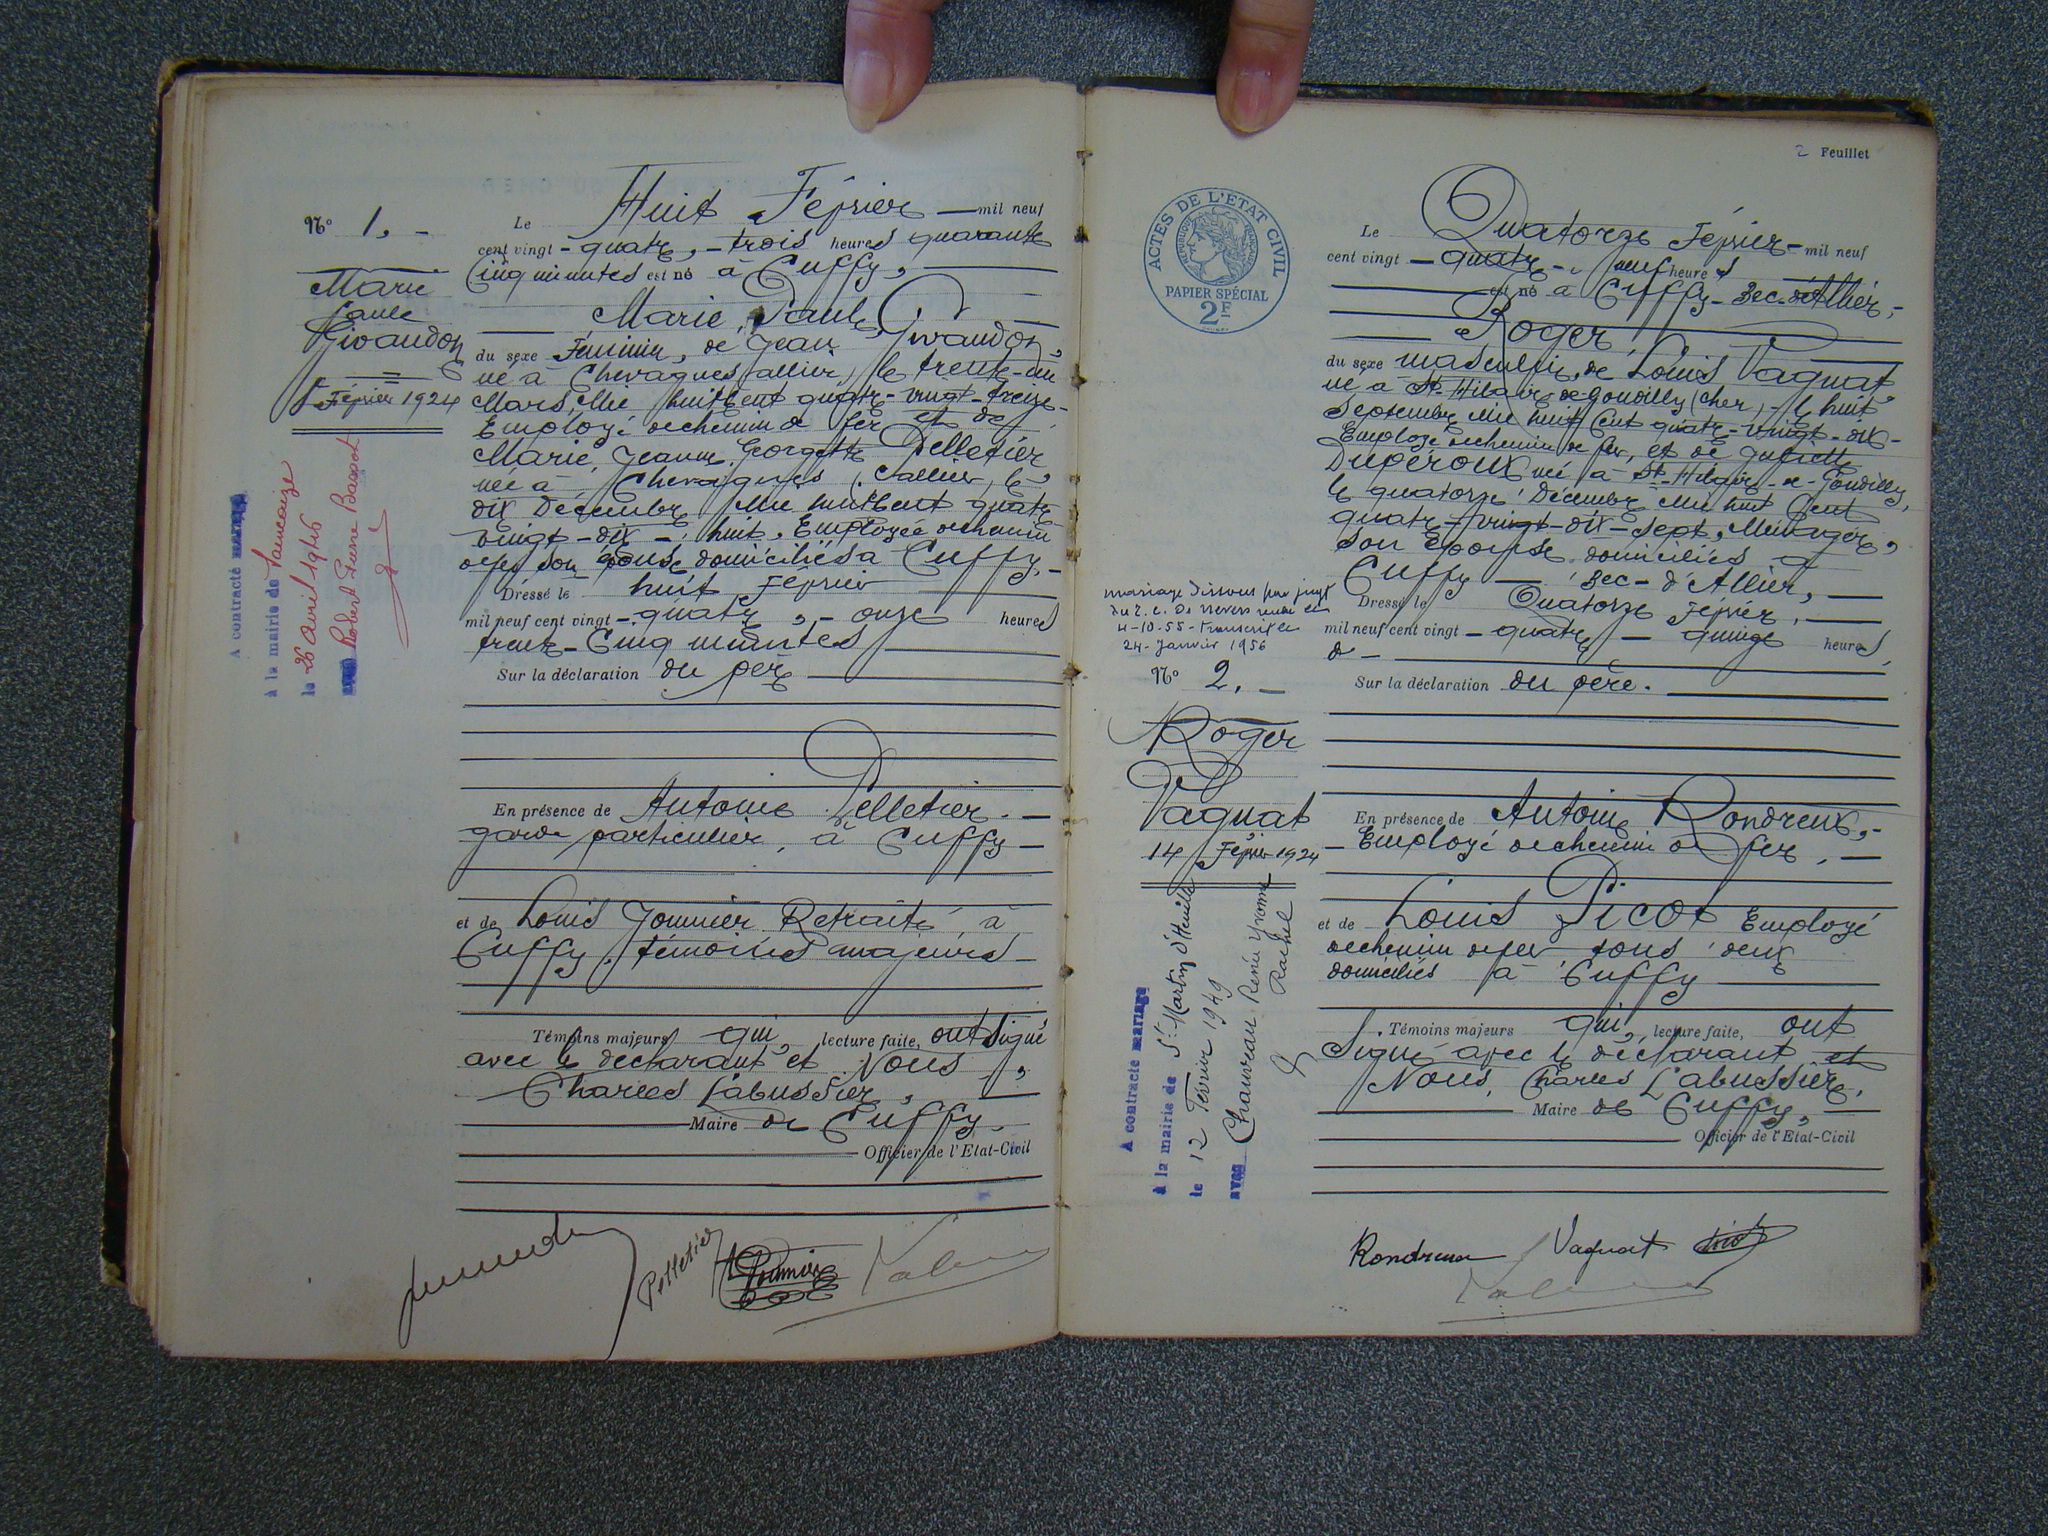 N° 1. -
Marie
Paule
Givaudon
8 Février 1924
A contracté mariage
à la mairie de
le 26 avril 1946
avec Robert Pierre Bassot
Le Huit Février mil neuf
cent vingt - quatre, - trois heures quarante
Cinq minutes est né à Cuffy,
Marie, Paule, Givaudon,
du sexe Féminin, de Jean Givaudon,
né à Chevagnes (allier) le trente-un
Mars, Mil huit Cent quatre-vingt-treize-
Employé de chemin de fer et de
Marie, Jeanne, Georgette Pelletier
née à Chevagnes (allier) le
dix Décembre Mil huit Cent quatre
vingt-dix-huit, Employée de chemin
de fer son épouse domiciliés à Cuffy, -
Dressé le huit Février
mil neuf cent vingt - quatre, - onze heures
trente-Cinq minutes
Sur la déclaration du père
En présence de Antoine Pelletier. -
garde particulier, à Cuffy -
et de Louis Retraité à
Cuffy, témoins majeurs -
Témoins majeurs qui, lecture faite, ont signé
avec le déclarant et Nous,
Charles Labussière,
Maire de Cuffy,
Officier de l'Etat-Civil
Pelletier
2 Feuillet
ACTES DE L'ÉTAT CIVIL
RÉPUBLIQUE FRANÇAISE
PAPIER SPÉCIAL
2F
Le Quatorze Février - mil neuf
cent vingt - quatre -, neuf heures
est né à Cuffy - Bec-d'Allier, -
Roger,
du sexe masculin, de Louis Vagnat,
né à St-Hilaire-de-Gondilly (cher), le huit
Septembre Mil huit Cent quatre-vingt-dix-
Employé de chemin de fer, et de Gabrielle
Dupéroux née à St-Hilaire-de-Gondilly,
le quatorze Décembre Mil huit Cent
quatre-vingt-dix-sept, Ménagère,
son Epouse domiciliés à
Cuffy - Bec-d'Allier,
Dressé le Quatorze Février,
mil neuf cent vingt - quatre - quinze heures
Sur la déclaration du père.
mariage dissous par jugt
du T. C. de Nevers rendu le
4-10-55 - transcrit le
24 - Janvier 1956
N° 2. -
Roger
Vagnat
14 Février 1924
A contracté mariage
à la mairie de St Martin d'Heuille
le 12 Février 1949
avec Chauveau Renée Yvonne
Rachel
En présence de Antoine Rondreux, -
- Employé de chemin de fer, -
et de Louis Picot Employé
de chemin de fer tous deux
domiciliés à Cuffy
Témoins majeurs qui, lecture faite, ont
Signé avec le déclarant et
Nous, Charles Labussière,
Maire de Cuffy,
Officier de l'Etat-Civil
Rondreux Vagnat Picot